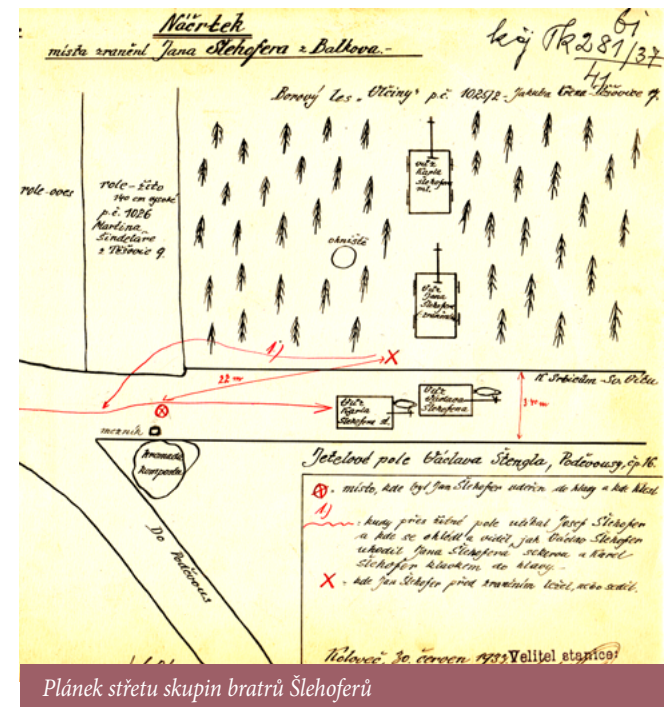 Náčrtek
místa zranění Jana Šlehofera z Balkova.-
Tk 281/37
41
Borový les „Vlčiny" p.č. 1025/2 - Jakuba
role-oves
role-žito
140 cm vysoké
p.č. 1026
Martina
Šindeláře
z Těšovic 9.
vůz
Karla
Šlehofera
ml.
ohniště
vůz
Jana
Šlehofera
1)
X
22 m
K Srbicům-Sv. Vítu
Vůz
Karla
Šlehofera st.
Vůz
Václava
Šlehofera
mezník
hromada
kompostu
Do Poděvous
Jetelové pole Václava Štengla, Poděvousy, čp. 16.
- místo, kde byl Jan Šlehofer udeřen do hlavy a kde klesl
1)
- kudy přes žitné pole utíkal Josef Šlehofer
a kde se ohlédl a viděl, jak Václav Šlehofer
uhodil Jana Šlehofera sekerou a Karel
Šlehofer klackem do hlavy.-
X - kde Jan Šlehofer před zraněním ležel, nebo seděl.
Koloveč, 30. červen 1937 Velitel stanice:
Plánek střetu skupin bratrů Šlehoferů